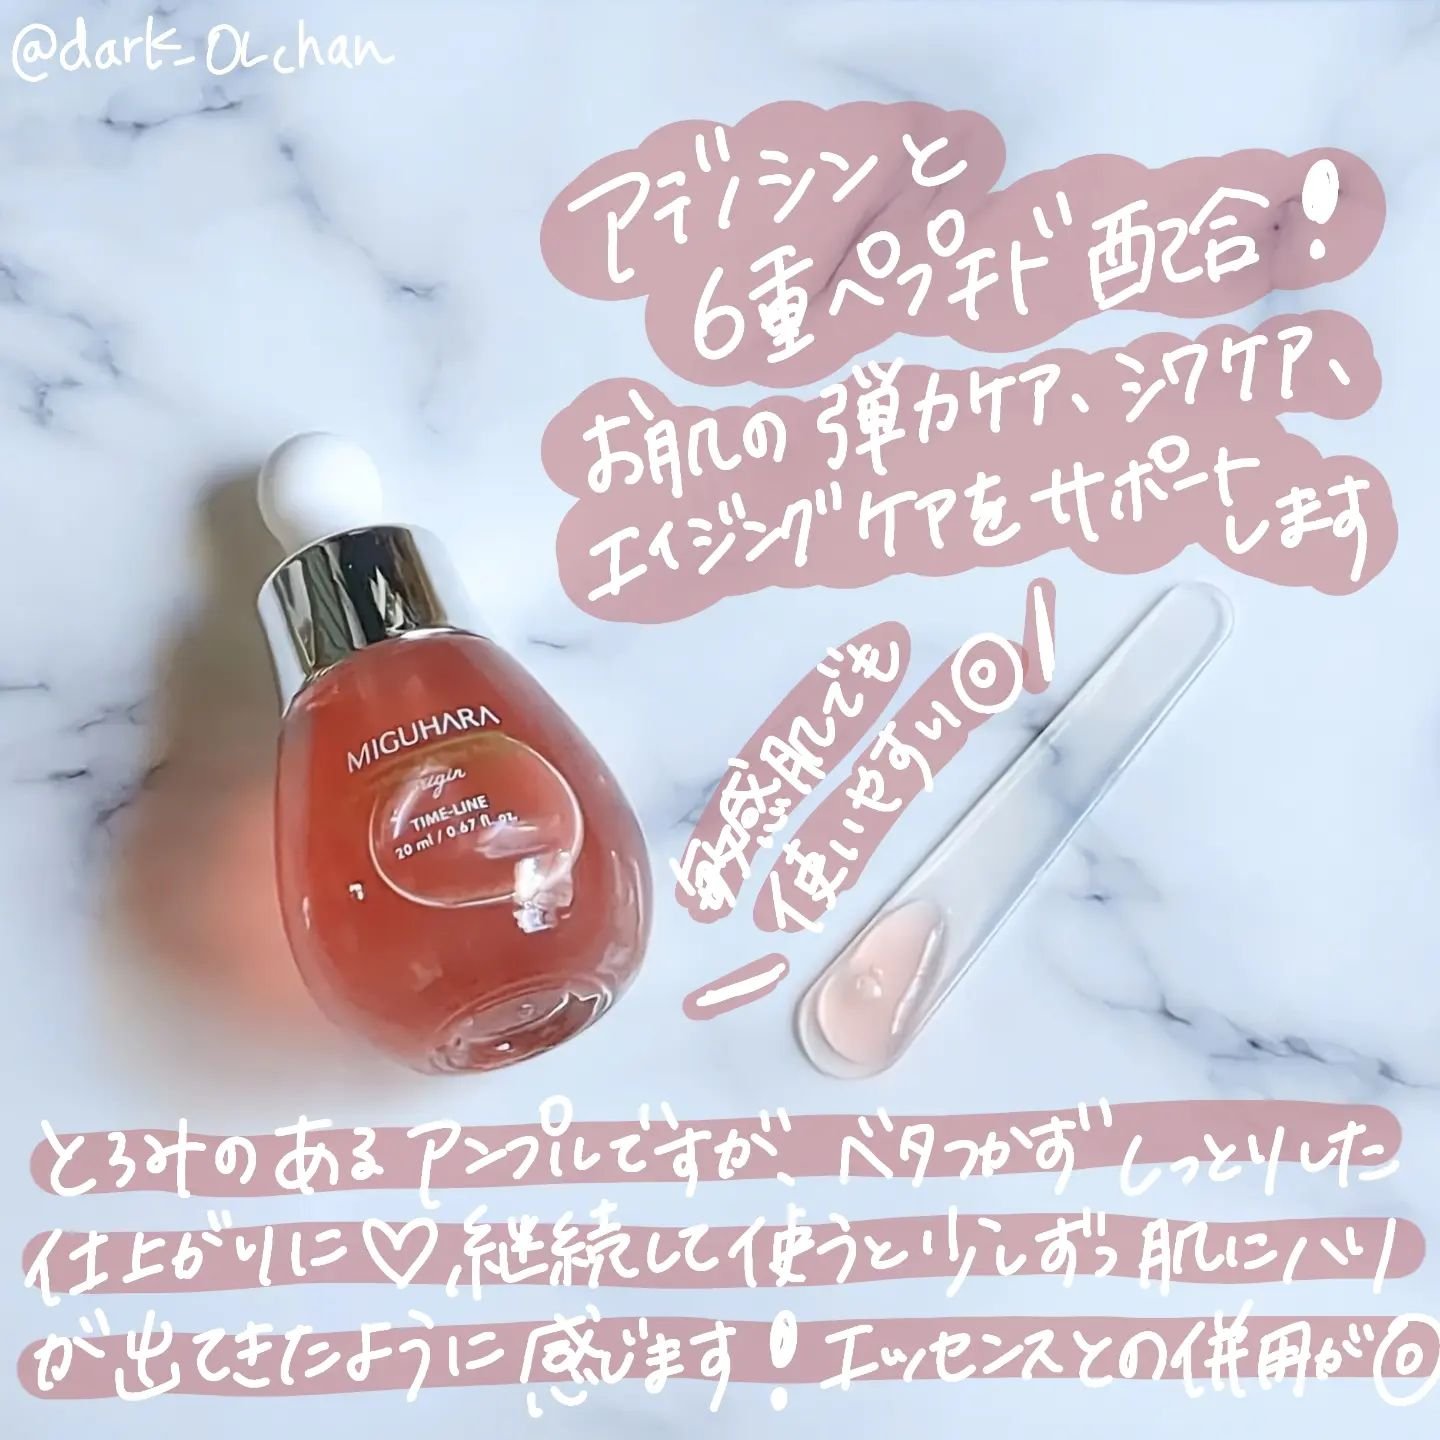 @dark_OL_chan
アデノシンと
6重ペプチド配合！
お肌の弾力ケア、シワケア、
エイジングケアをサポート
します
敏感肌でも
使いやすい◎
MIGUHARA
Origin
TIME-LINE
20 ml / 0.67 fl. oz.
とろみのあるアンプルですが、ベタつかずしっとりした
仕上がりに♡継続して使うと少しずつ肌にハリ
が出てきたように感じます！エッセンスとの併用が◎